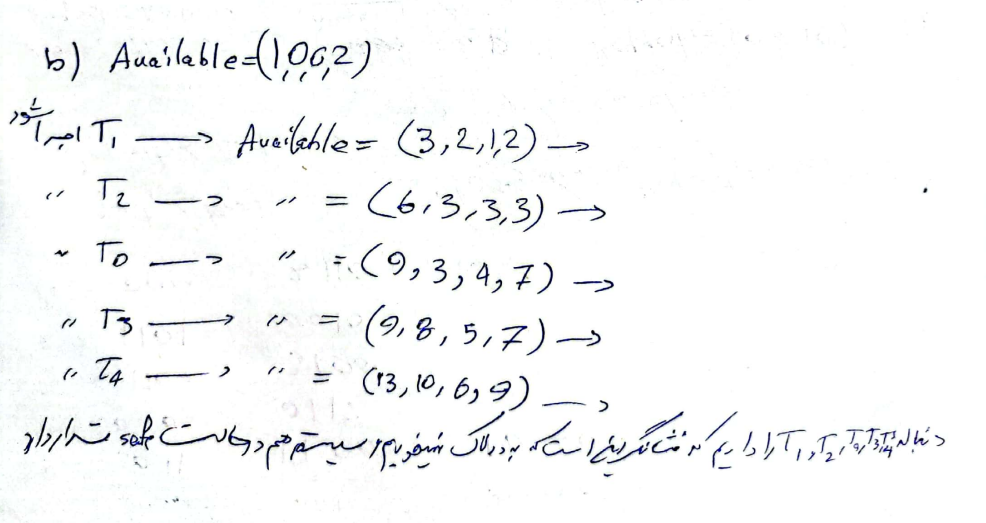 b) Available=(1,0,0,2)
T1 اجرا شود → Available = (3,2,1,2) →
〃 T2 → 〃 = (6,3,3,3) →
〃 T0 → 〃 = (9,3,4,7) →
〃 T3 → 〃 = (9,8,5,7) →
〃 T4 → 〃 = (13,10,6,9) →
دنباله T1,T2,T0,T3,T4 را داریم که نشانگر این است که به ددلاک نمیخوریم و سیستم هم در حالت safe قرار دارد